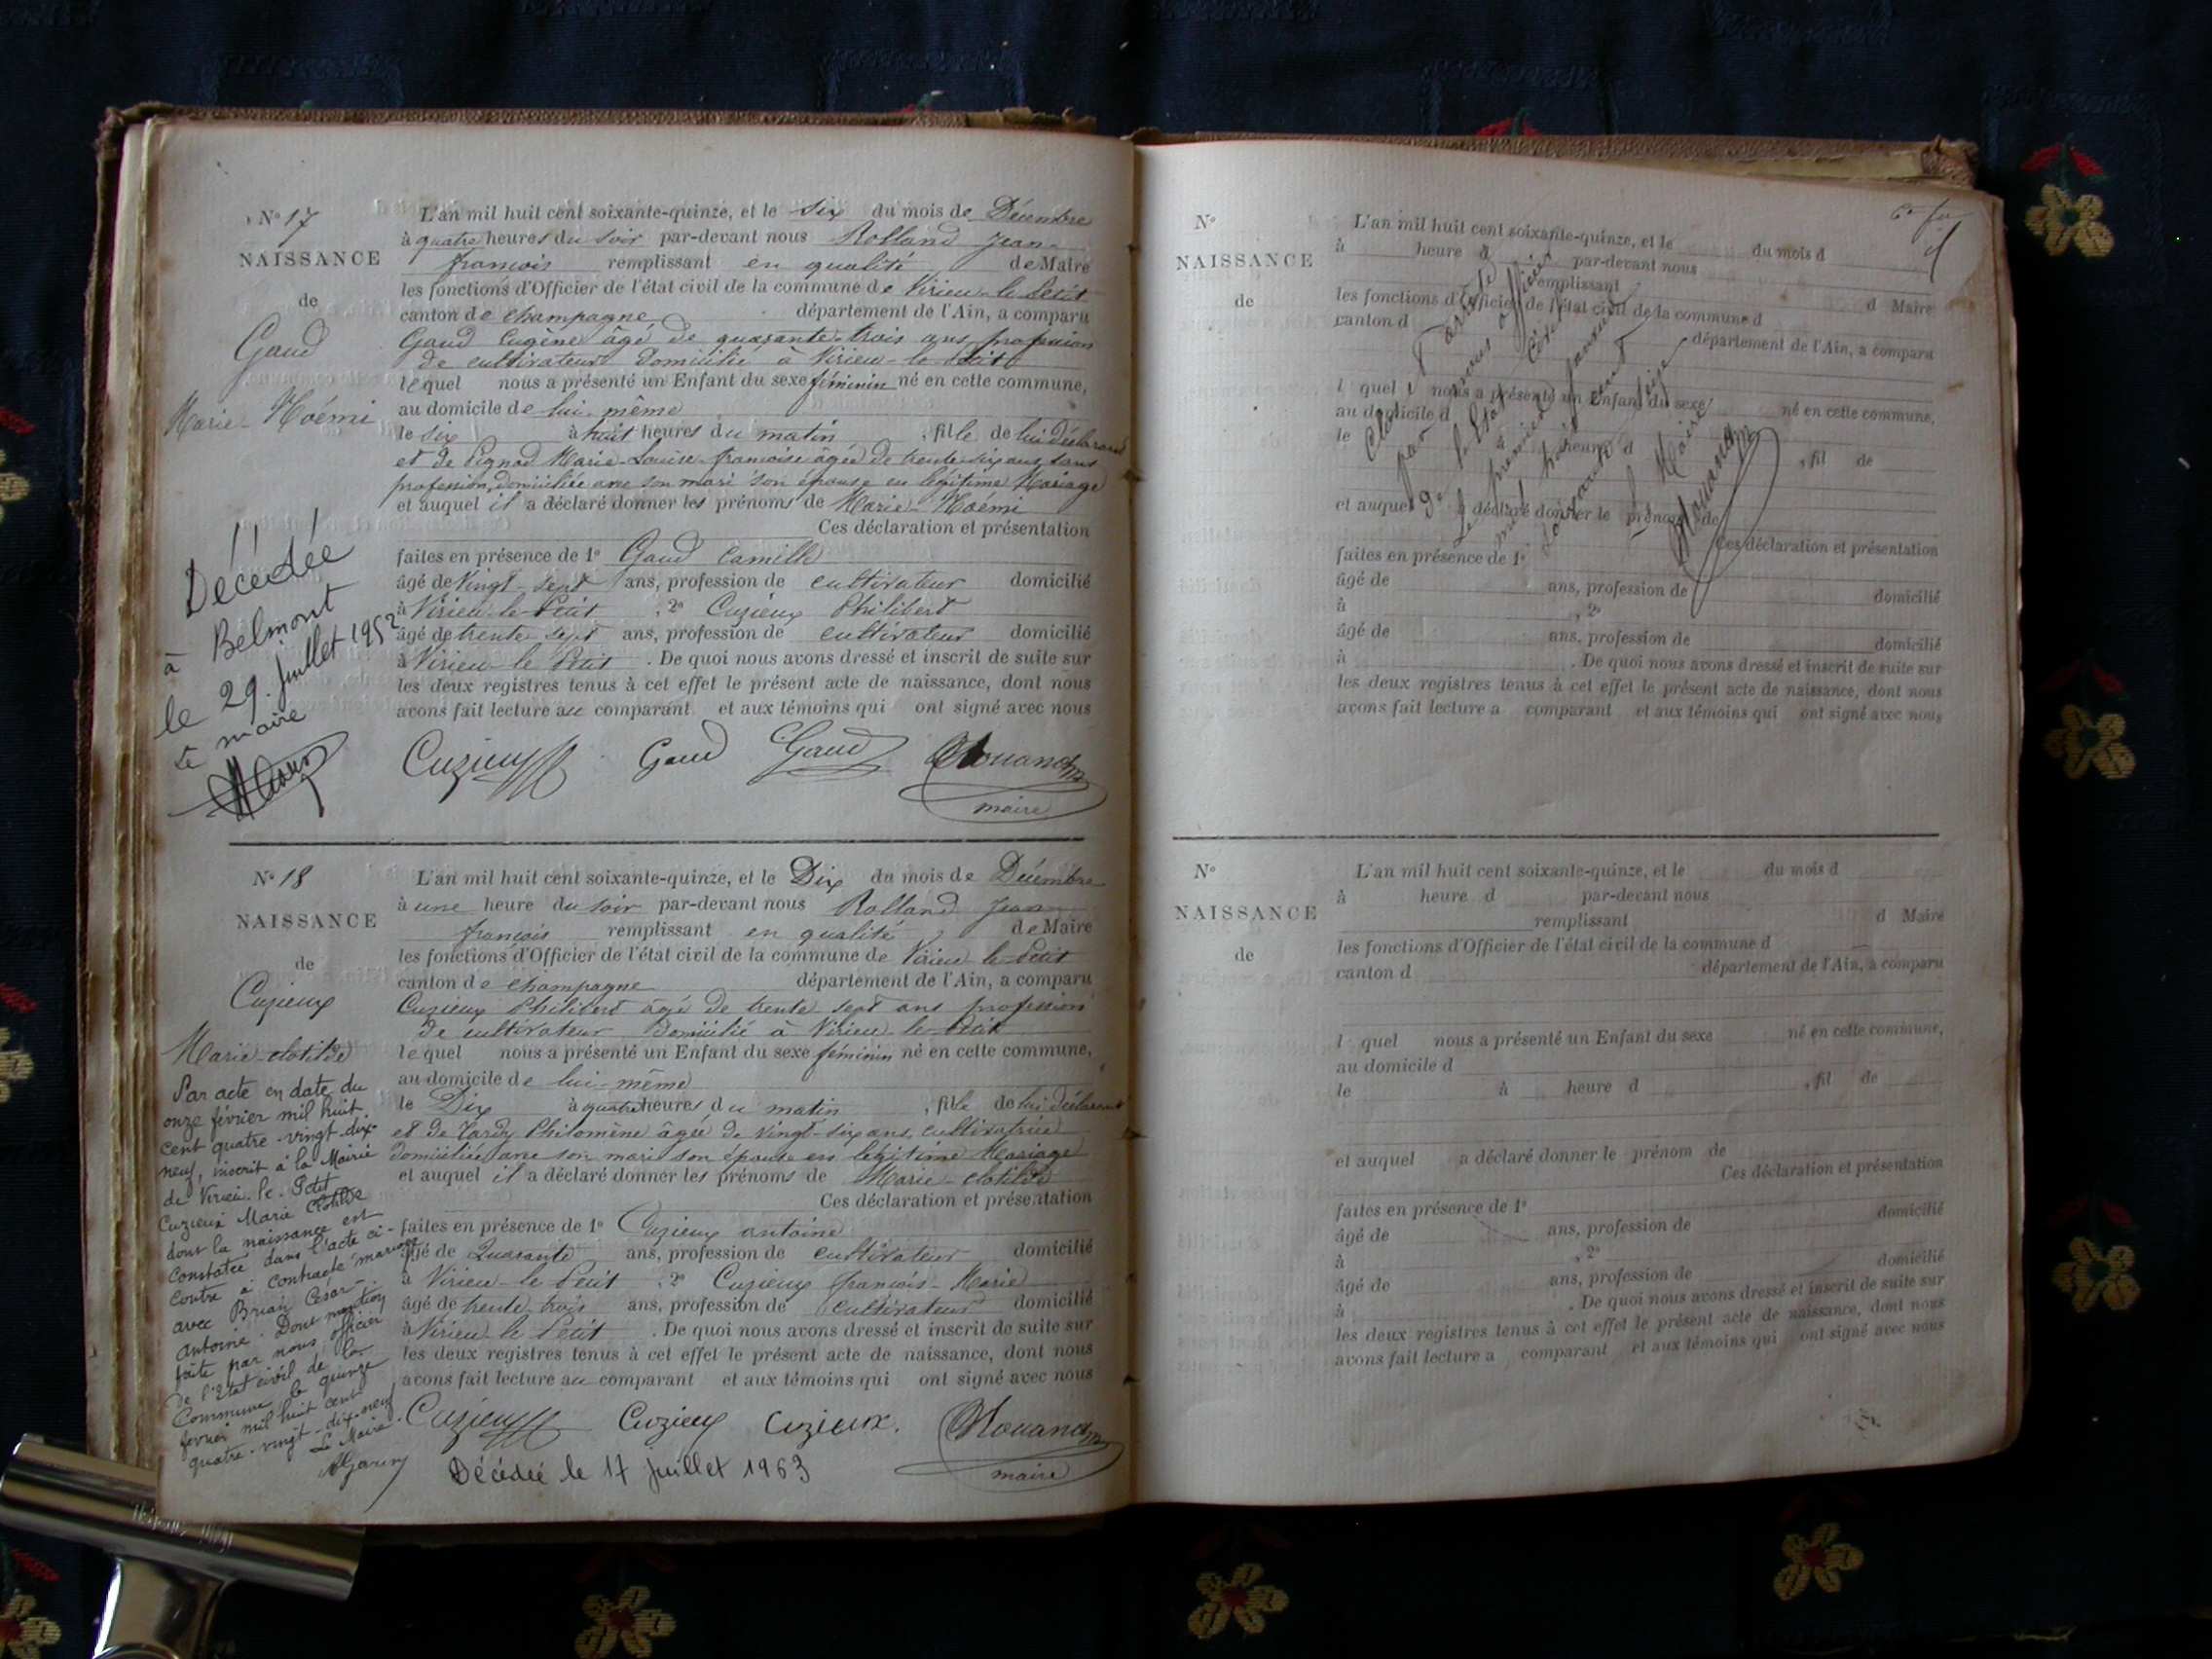 N° 17
NAISSANCE
de
Gaud
Marie-Noémi
Décédée
à Belmont
le 29 Juillet 1952
Le maire
L'an mil huit cent soixante-quinze, et le six du mois de Décembre
à quatre heures du soir par-devant nous Rolland Jean-
françois remplissant en qualité de Maire
les fonctions d'Officier de l'état civil de la commune de Virieu-le-Petit
canton de champagne département de l'Ain, a comparu
Gaud Eugène âgé de quarante-trois ans, profession
de cultivateur domicilié à Virieu-le-Petit
lequel nous a présenté un Enfant du sexe féminin né en cette commune,
au domicile de lui-même
le six à huit heures du matin, fille de lui déclarant
et de Pignod Marie-Louise-françoise âgée de trente-six ans, sans
profession, domiciliée avec son mari son épouse en légitime Mariage
et auquel il a déclaré donner les prénoms de Marie-Noémi
Ces déclaration et présentation
faites en présence de 1° Gaud Camille
âgé de vingt-sept ans, profession de cultivateur domicilié
à Virieu-le-Petit, 2° Cuzieux Philibert
âgé de trente-sept ans, profession de cultivateur domicilié
à Virieu-le-Petit. De quoi nous avons dressé et inscrit de suite sur
les deux registres tenus à cet effet le présent acte de naissance, dont nous
avons fait lecture au comparant et aux témoins qui ont signé avec nous
Cuzieux Gaud Gaud
maire
N° 18
NAISSANCE
de
Cuzieux
Marie-clotilde
Par acte en date du
onze février mil huit
cent quatre-vingt-dix-
neuf, inscrit à la Mairie
de Virieu-le-Petit
Cuzieux Marie Clotilde
dont la naissance est
constatée dans l'acte ci-
contre a contracté mariage
avec Brian César
Antoine. Dont mention
faite par nous, officier
de l'Etat civil de la
Commune le quinze
fevrier mil huit cent
quatre-vingt-dix-neuf
Le Maire
L'an mil huit cent soixante-quinze, et le Dix du mois de Décembre
à une heure du soir par-devant nous Rolland Jean
françois remplissant en qualité de Maire
les fonctions d'Officier de l'état civil de la commune de Virieu-le-Petit
canton de champagne département de l'Ain, a comparu
Cuzieux Philibert âgé de trente sept ans profession
de cultivateur domicilié à Virieu-le-Petit
lequel nous a présenté un Enfant du sexe féminin né en cette commune,
au domicile de lui-même
le Dix à quatre heures du matin, fille de lui déclarant
et de Tardy Philomène âgée de vingt-six ans, cultivatrice
domiciliée avec son mari son épouse en légitime Mariage
et auquel il a déclaré donner les prénoms de Marie-clotilde
Ces déclaration et présentation
faites en présence de 1° Cuzieux antoine
âgé de Quarante ans, profession de cultivateur domicilié
à Virieu-le-Petit, 2° Cuzieux françois-Marie
âgé de trente-trois ans, profession de cultivateur domicilié
à Virieu-le-Petit. De quoi nous avons dressé et inscrit de suite sur
les deux registres tenus à cet effet le présent acte de naissance, dont nous
avons fait lecture au comparant et aux témoins qui ont signé avec nous
Cuzieux Cuzieux Cuzieux.
maire
Décédée le 17 Juillet 1963
N°
NAISSANCE
de
L'an mil huit cent soixante-quinze, et le du mois d
à heure d par-devant nous
remplissant d Maire
les fonctions d'Officier de l'état civil de la commune d
canton d département de l'Ain, a comparu
l quel nous a présenté un Enfant du sexe né en cette commune,
au domicile d
le à heure d, fil de
et auquel a déclaré donner le prénom de
Ces déclaration et présentation
faites en présence de 1°
âgé de ans, profession de domicilié
à, 2°
âgé de ans, profession de domicilié
à. De quoi nous avons dressé et inscrit de suite sur
les deux registres tenus à cet effet le présent acte de naissance, dont nous
avons fait lecture a comparant et aux témoins qui ont signé avec nous
Clos
par nous officier
de l'Etat
Le premier janvier
mil huit cent
soixante seize
Le Maire
N°
NAISSANCE
de
L'an mil huit cent soixante-quinze, et le du mois d
à heure d par-devant nous
remplissant d Maire
les fonctions d'Officier de l'état civil de la commune d
canton d département de l'Ain, a comparu
l quel nous a présenté un Enfant du sexe né en cette commune,
au domicile d
le à heure d, fil de
et auquel a déclaré donner le prénom de
Ces déclaration et présentation
faites en présence de 1°
âgé de ans, profession de domicilié
à, 2°
âgé de ans, profession de domicilié
à. De quoi nous avons dressé et inscrit de suite sur
les deux registres tenus à cet effet le présent acte de naissance, dont nous
avons fait lecture a comparant et aux témoins qui ont signé avec nous